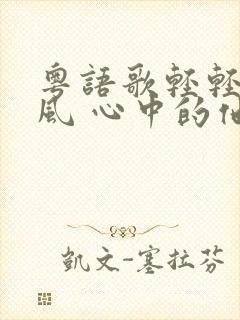 粵語歌輕輕
風 心中的
凱文-塞拉芬